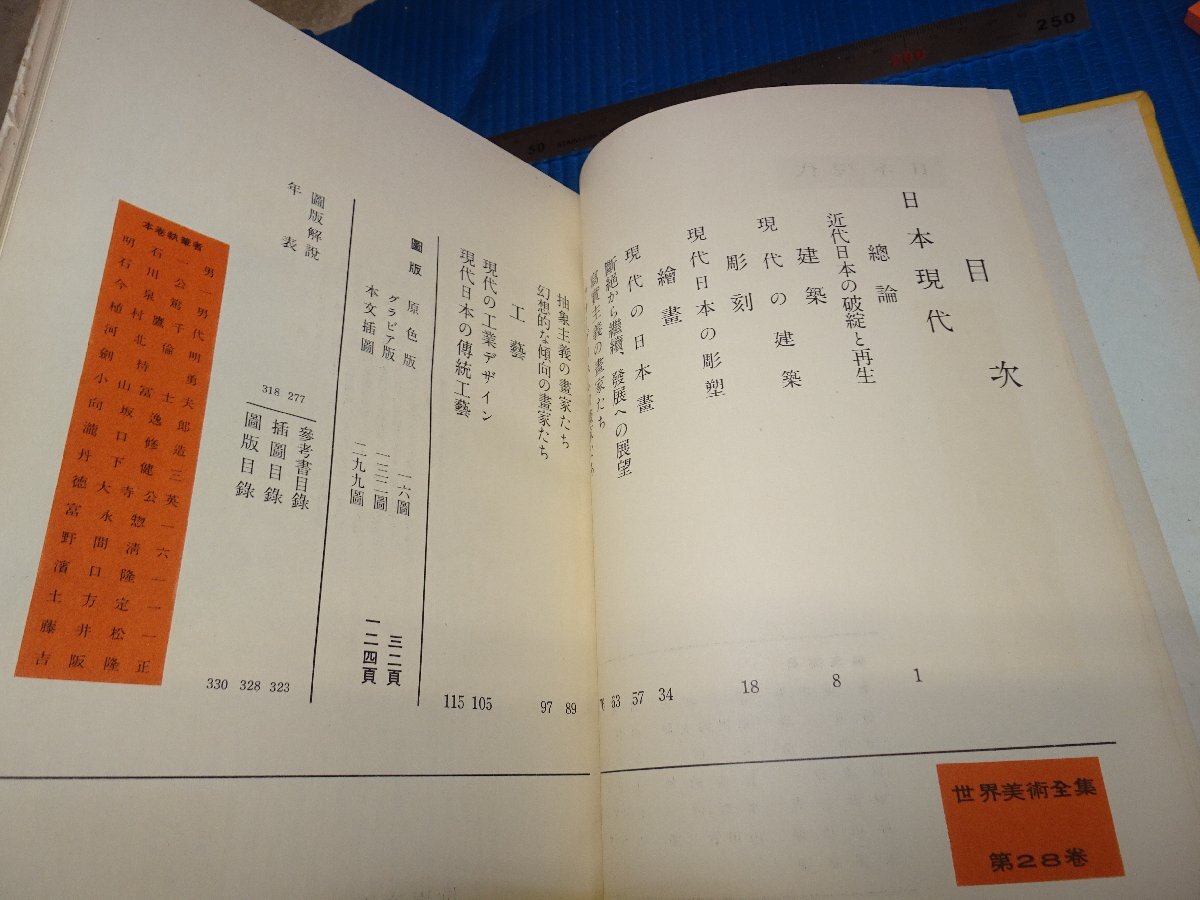 目次
日本現代
總論
近代日本の破綻と再生
1
建築
現代の建築
8
彫刻
現代日本の彫塑
18
繪畫
現代の日本畫
34
斷絕から繼續、發展への展望
57
寫實主義の畫家たち
63
抽象主義の畫家たち
89
幻想的な傾向の畫家たち
97
工藝
現代の工業デザイン
105
現代日本の傳統工藝
115
圖版
原色版
一六圖
グラビア版
一三二圖
三二頁
本文插圖
二九九圖
一二四頁
圖版解說
277
年表
318
參考書目錄
323
插圖目錄
328
圖版目錄
330
本卷執筆者
明石一男
石川公一
今泉篤男
植村鷹千代
河北倫明
劍持勇
小山冨士夫
向坂逸郎
瀧口修造
丹下健三
德大寺公英
富永惣一
野間淸六
濱口隆一
土方定一
藤井松一
吉阪隆正
世界美術全集
第28卷
250
200
50